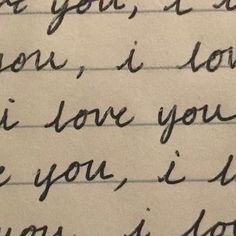 you, i
you, i lov
i love you
you, i l
you, i lo